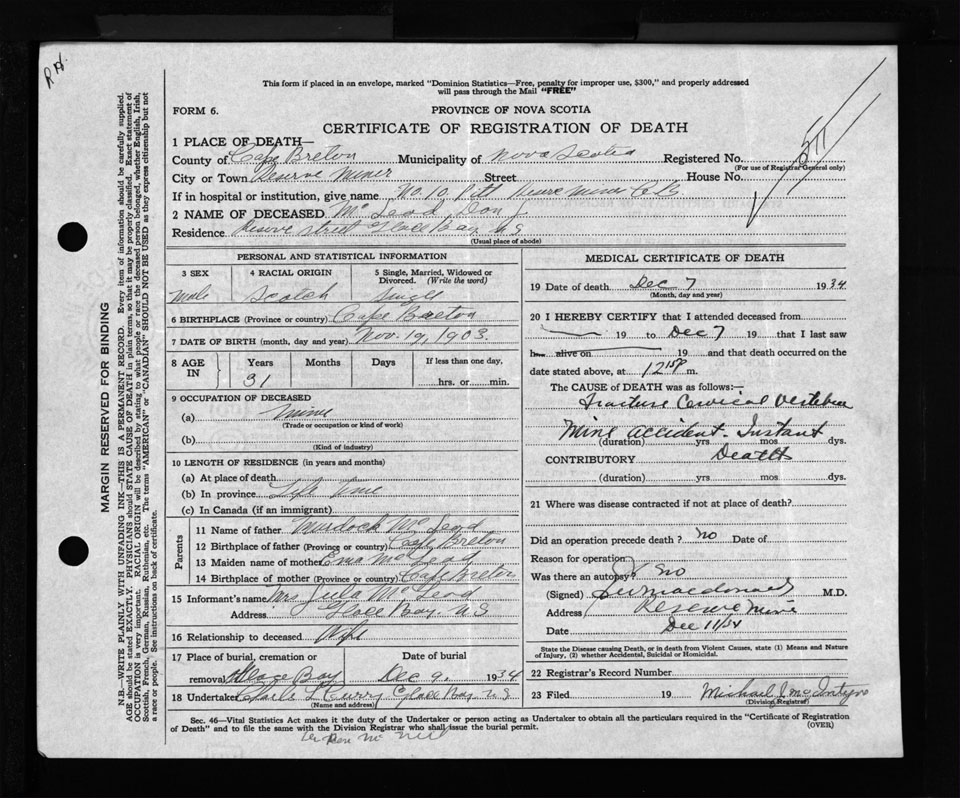 R.H.
This form if placed in an envelope, marked "Dominion Statistics—Free, penalty for improper use, $300," and properly addressed
will pass through the Mail "FREE"
FORM 6.
PROVINCE OF NOVA SCOTIA
CERTIFICATE OF REGISTRATION OF DEATH
1 PLACE OF DEATH—
County of Cape Breton Municipality of Nova Scotia Registered No.
(For use of Registrar General only)
City or Town Reserve Mines Street House No.
If in hospital or institution, give name No. 10 Pitt Reserve Mines C.B
2 NAME OF DECEASED Mc Leod, Don J
Residence Reserve Street Glace Bay, N S
(Usual place of abode)
PERSONAL AND STATISTICAL INFORMATION
3 SEX 4 RACIAL ORIGIN 5 Single, Married, Widowed or
Divorced. (Write the word)
Male Scotch Single
6 BIRTHPLACE (Province or country) Cape Breton
7 DATE OF BIRTH (month, day and year) Nov. 19, 1903
8 AGE IN Years Months Days If less than one day,
31 hrs. or min.
9 OCCUPATION OF DECEASED
(a) Miner
(Trade or occupation or kind of work)
(b)
(Kind of industry)
10 LENGTH OF RESIDENCE (in years and months)
(a) At place of death
(b) In province Life Time
(c) In Canada (if an immigrant)
Parents
11 Name of father Murdock Mc Leod
12 Birthplace of father (Province or country) Cape Breton
13 Maiden name of mother Mc Leod
14 Birthplace of mother (Province or country) Cape Breton
15 Informant's name Mrs Mc Leod
Address Glace Bay, N S
16 Relationship to deceased Wife
17 Place of burial, cremation or Date of burial
removal Glace Bay Dec 9, 1934
18 Undertaker Curry Glace Bay N S
(Name and address)
MEDICAL CERTIFICATE OF DEATH
19 Date of death Dec 7 1934
(Month, day and year)
20 I HEREBY CERTIFY that I attended deceased from
19 to Dec 7 19 that I last saw
h alive on 19 and that death occurred on the
date stated above, at 12 15 P m.
The CAUSE of DEATH was as follows:—
Fracture Cervical Vertebra
Mine accident. Instant
(duration) yrs mos dys.
Death
CONTRIBUTORY
(duration) yrs. mos. dys.
21 Where was disease contracted if not at place of death?
Did an operation precede death? no Date of
Reason for operation
Was there an autopsy? no
(Signed) Macdonald M.D.
Address Reserve Mines
Date Dec 11/34
State the Disease causing Death, or in death from Violent Causes, state (1) Means and Nature
of Injury, (2) whether Accidental, Suicidal or Homicidal.
22 Registrar's Record Number
23 Filed 19 Michael J. McIntyre
(Division Registrar)
Sec. 46—Vital Statistics Act makes it the duty of the Undertaker or person acting as Undertaker to obtain all the particulars required in the "Certificate of Registration
of Death" and to file the same with the Division Registrar who shall issue the burial permit.
(OVER)
MARGIN RESERVED FOR BINDING
N.B.—WRITE PLAINLY WITH UNFADING INK—THIS IS A PERMANENT RECORD. Every item of information should be carefully supplied.
AGE should be stated EXACTLY. PHYSICIANS should STATE CAUSE OF DEATH in plain terms, so that it may be properly classified. Exact statement of
OCCUPATION is very important. RACIAL ORIGIN will be described by stating to what people or race the deceased person belonged, whether English, Irish,
Scottish, French, German, Russian, Ruthenian, etc. The terms "AMERICAN" or "CANADIAN" SHOULD NOT BE USED as they express citizenship but not
a race or people. See instructions on back of certificate.